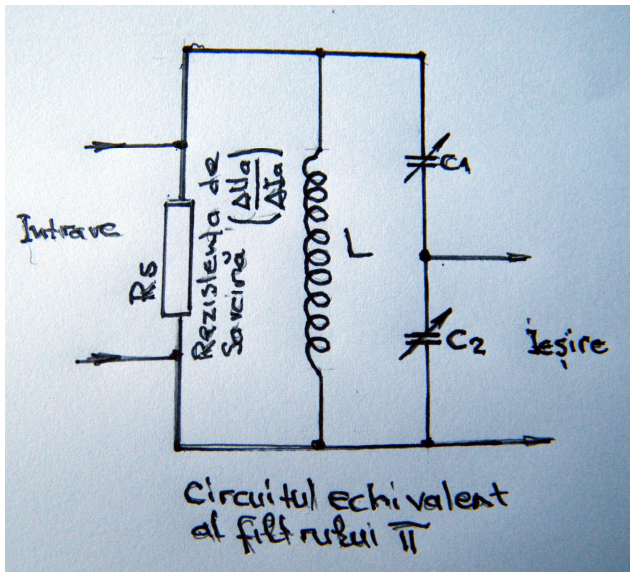 Intrare
Rs
Rezistența de
Sarcină (ΔUa/ΔIa)
L
C1
C2
Ieșire
Circuitul echivalent
al filtrului π